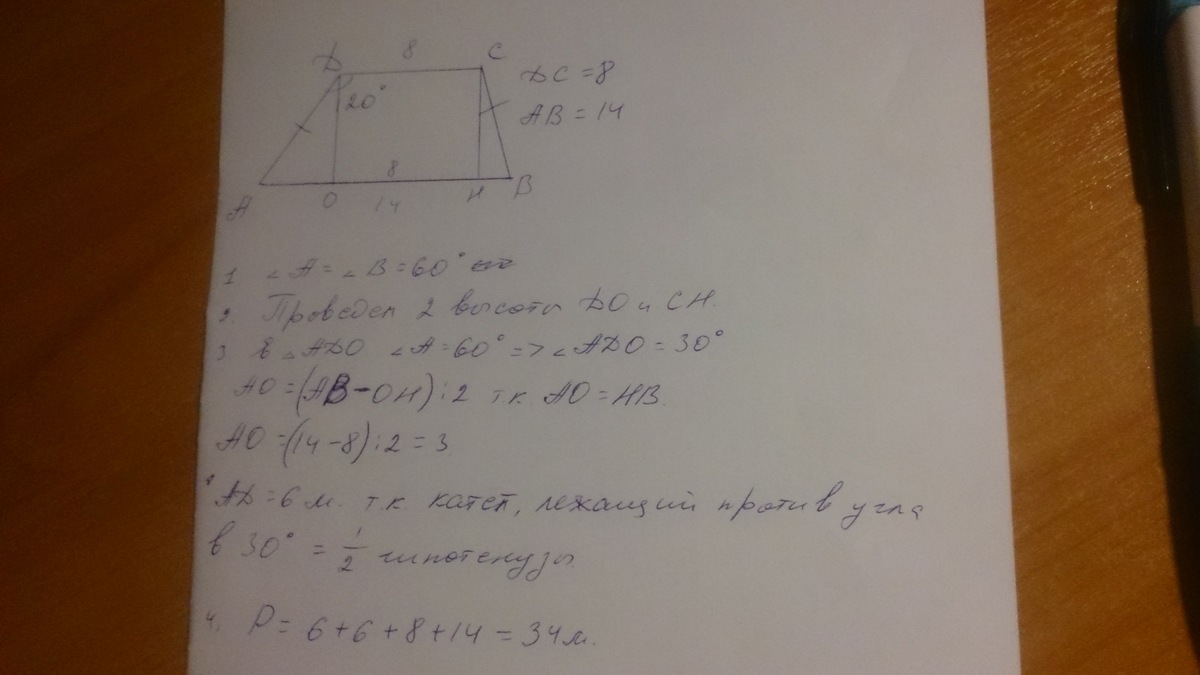 D 8 C
DC = 8
20°
AB = 14
8
A O 14 H B
1 ∠A = ∠B = 60°
2. Проведем 2 высоты DO и CH.
3 В △ADO ∠A = 60° => ∠ADO = 30°
AO = (AB - OH) : 2 т.к. AO = HB.
AO = (14 - 8) : 2 = 3
AD = 6 м. т.к. катет, лежащий против угла
в 30° = 1/2 гипотенузы
4. P = 6 + 6 + 8 + 14 = 34 м.